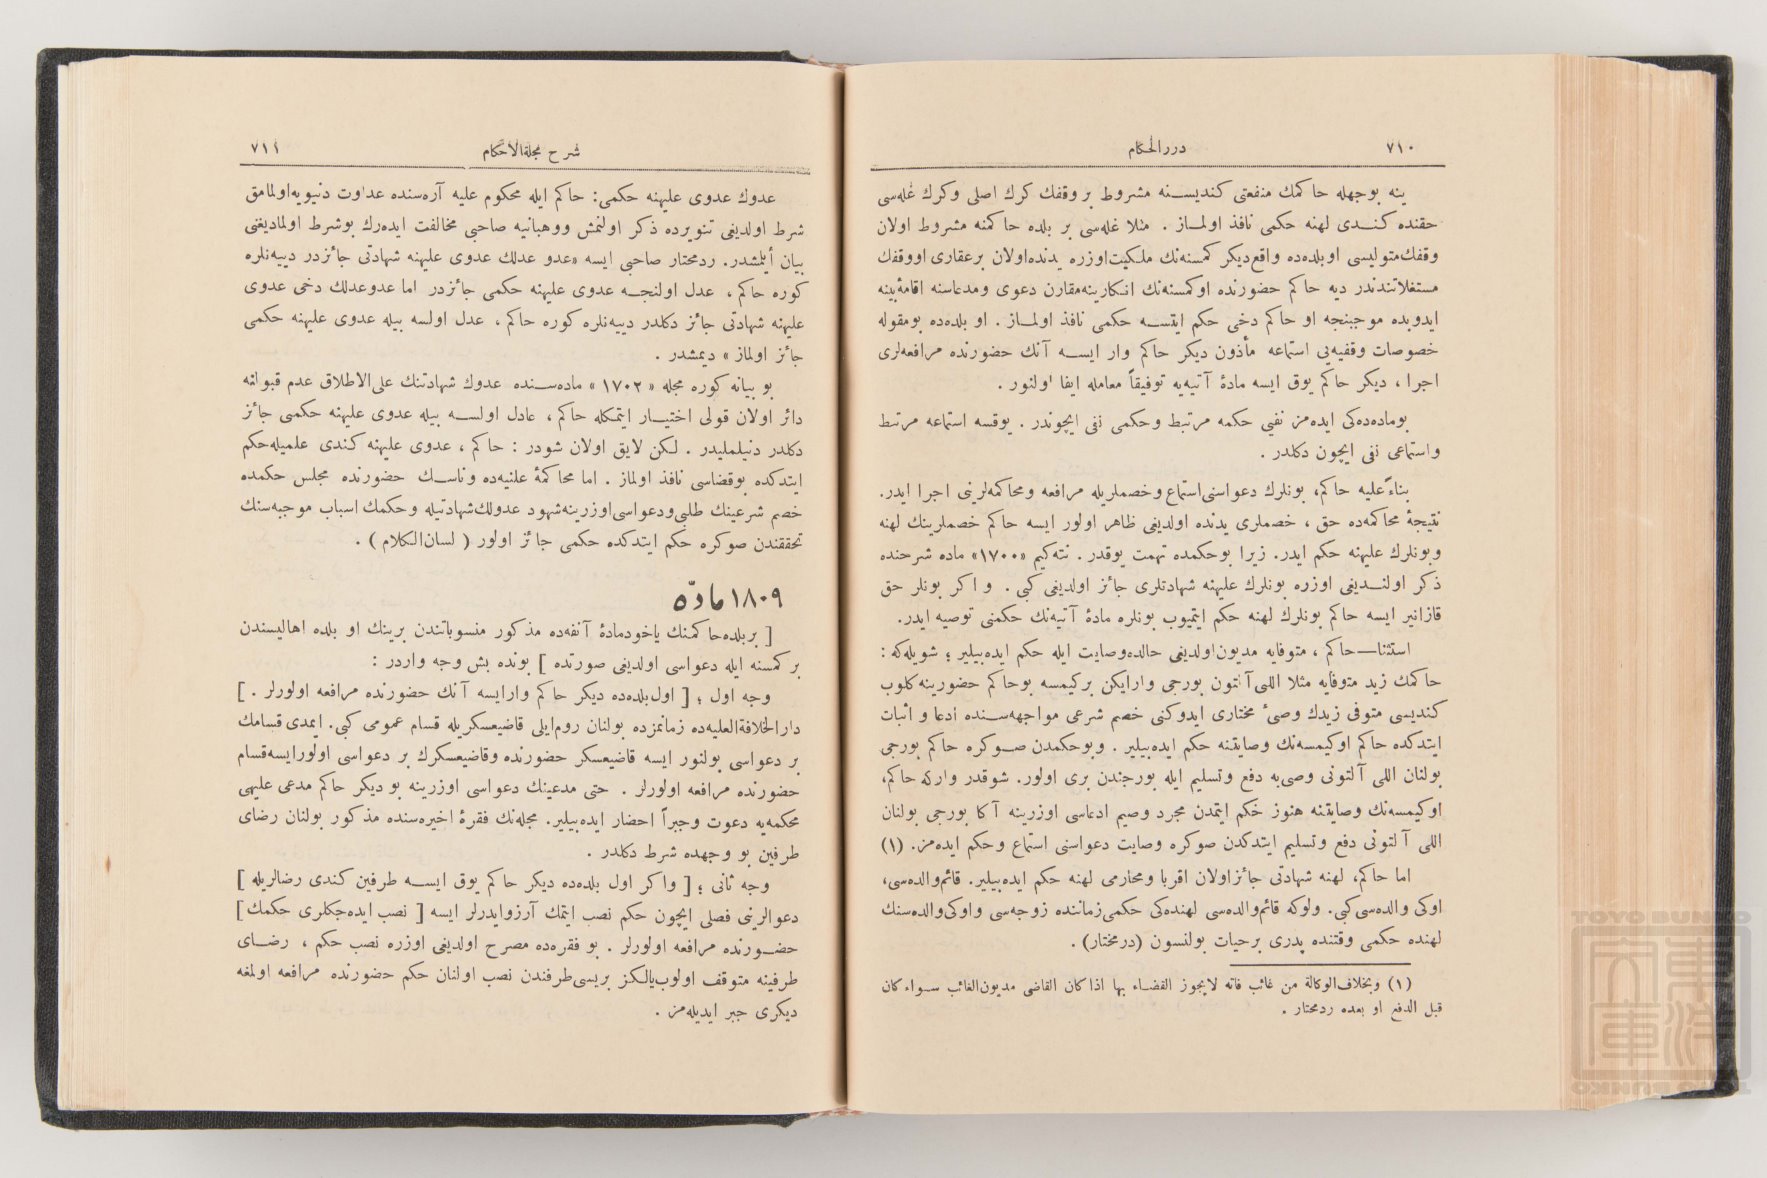 ٧١٠
دررالحكام
ينه بوجهله حاكمك منفعتى كنديسنه مشروط بر وقفك كرك اصلى وكرك غلهسى
حقنده كندى لهنه حكمى نافذ اولماز . مثلا غلهسى بر بلده حاكمنه مشروط اولان
وقفك متوليسى اوبلدهده واقع ديكر كمسنهنك ملكيت اوزره يدنده اولان برعقارى اووقفك
مستغلاتندندر ديه حاكم حضورنده اوكمسنهنك انكارينه مقارن دعوى ومدعاسنه اقامهٔ بينه
ايدوبده موجبنجه او حاكم دخى حكم ايتسه حكمى نافذ اولماز . او بلدهده بومقوله
خصوصات وقفيهيى استماعه مأذون ديكر حاكم وار ايسه آنك حضورنده مرافعهلرى
اجرا ، ديكر حاكم يوق ايسه مادهٔ آتيهيه توفيقاً معامله ايفا اولنور .
بومادهدهكى ايدهمز نفيى حكمه مرتبط وحكمى نفى ايچوندر . يوقسه استماعه مرتبط
واستماعى نفى ايچون دكلدر .
بناءً عليه حاكم، بونلرك دعواسنى استماع وخصملريله مرافعه ومحاكمهلرينى اجرا ايدر.
نتيجهٔ محاكمهده حق ، خصملرى يدنده اولديغى ظاهر اولور ايسه حاكم خصملرينك لهنه
وبونلرك عليهنه حكم ايدر. زيرا بوحكمده تهمت يوقدر . نتهكيم «١٧٠٠» ماده شرحنده
ذكر اولنديغى اوزره بونلرك عليهنه شهادتلرى جائز اولديغى كبى . و اكر بونلر حق
قازانير ايسه حاكم بونلرك لهنه حكم ايتميوب بونلره مادهٔ آتيهنك حكمنى توصيه ايدر.
استثنا — حاكم ، متوفايه مديون اولديغى حالده وصايت ايله حكم ايدهبيلير ؛ شويلهكه :
حاكمك زيد متوفايه مثلا اللى آلتون بورجى وارايكن بركيمسه بوحاكم حضورينه كلوب
كنديسى متوفى زيدك وصىٔ مختارى ايدوكنى خصم شرعى مواجههسنده ادعا و اثبات
ايتدكده حاكم اوكيمسهنك وصايتنه حكم ايدهبيلير . وبوحكمدن صوكره حاكم بورجى
بولنان اللى آلتونى وصىيه دفع وتسليم ايله بورجندن برى اولور. شوقدر واركه حاكم،
اوكيمسهنك وصايتنه هنوز حكم ايتمدن مجرد وصيم ادعاسى اوزرينه آكا بورجى بولنان
اللى آلتونى دفع وتسليم ايتدكدن صوكره وصايت دعواسنى استماع وحكم ايدهمز. (١)
اما حاكم، لهنه شهادتى جائز اولان اقربا ومحارمى لهنه حكم ايدهبيلير. قائم والدهسى،
اوكى والدهسى كبى. ولوكه قائم والدهسى لهندهكى حكمى زماننده زوجهسى واوكى والدهسنك
لهنده حكمى وقتنده پدرى برحيات بولنسون (درمختار) .
(١) وبخلاف الوكالة من غائب فانه لايجوز القضاء بها اذا كان القاضى مديون الغائب سواء كان
قبل الدفع او بعده ردمحتار .
٧١١
شرح مجلة الاحكام
عدوك عدوى عليهنه حكمى: حاكم ايله محكوم عليه آرهسنده عداوت دنيويه اولمامق
شرط اولديغى تنويرده ذكر اولنمش ووهبانيه صاحبى مخالفت ايدهرك بوشرط اولماديغنى
بيان أيلمشدر. ردمحتار صاحبى ايسه «عدو عدلك عدوى عليهنه شهادتى جائزدر دييهنلره
كوره حاكم ، عدل اولنجه عدوى عليهنه حكمى جائزدر اما عدوعدلك دخى عدوى
عليهنه شهادتى جائز دكلدر دييهنلره كوره حاكم ، عدل اولسه بيله عدوى عليهنه حكمى
جائز اولماز» ديمشدر .
بو بيانه كوره مجله «١٧٠٢» مادهسنده عدوك شهادتنك على الاطلاق عدم قبولنه
دائر اولان قولى اختيار ايتمكله حاكم ، عادل اولسه بيله عدوى عليهنه حكمى جائز
دكلدر دنيلمليدر . لكن لايق اولان شودر : حاكم ، عدوى عليهنه كندى علميله حكم
ايتدكده بوقضاسى نافذ اولماز . اما محاكمهٔ علنيهده وناسك حضورنده مجلس حكمده
خصم شرعينك طلبى ودعواسى اوزرينه شهود عدولك شهادتيله وحكمك اسباب موجبهسنك
تحققندن صوكره حكم ايتدكده حكمى جائز اولور ( لسان الحكام ) .
١٨٠٩ مادّه
[ بربلده حاكمنك ياخود مادهٔ آنفهده مذكور منسوباتندن برينك او بلده اهاليسندن
بر كمسنه ايله دعواسى اولديغى صورتده ] بونده بش وجه واردر :
وجه اول ؛ [ اول بلدهده ديكر حاكم وارايسه آنك حضورنده مرافعه اولورلر . ]
دارالخلافة العليهده زمانمزده بولنان روم ايلى قاضيعسكريله قسام عمومى كبى. ايمدى قسامك
بر دعواسى بولنور ايسه قاضيعسكر حضورنده وقاضيعسكرك بر دعواسى اولورايسه قسام
حضورنده مرافعه اولورلر . حتى مدعينك دعواسى اوزرينه بو ديكر حاكم مدعى عليهى
محكمهيه دعوت وجبراً احضار ايدهبيلير. مجلهنك فقرهٔ اخيرهسنده مذكور بولنان رضاى
طرفين بو وجهده شرط دكلدر .
وجه ثانى ؛ [ واكر اول بلدهده ديكر حاكم يوق ايسه طرفين كندى رضالريله ]
دعوالرينى فصلى ايچون حكم نصب ايتمك آرزوايدرلر ايسه [ نصب ايدهجكلرى حكمك ]
حضورنده مرافعه اولورلر . بو فقرهده مصرح اولديغى اوزره نصب حكم ، رضاى
طرفينه متوقف اولوب يالكز بريسى طرفندن نصب اولنان حكم حضورنده مرافعه اولمغه
ديكرى جبر ايديلهمز .
TOYO BUNKO
東洋文庫
TOYO BUNKO